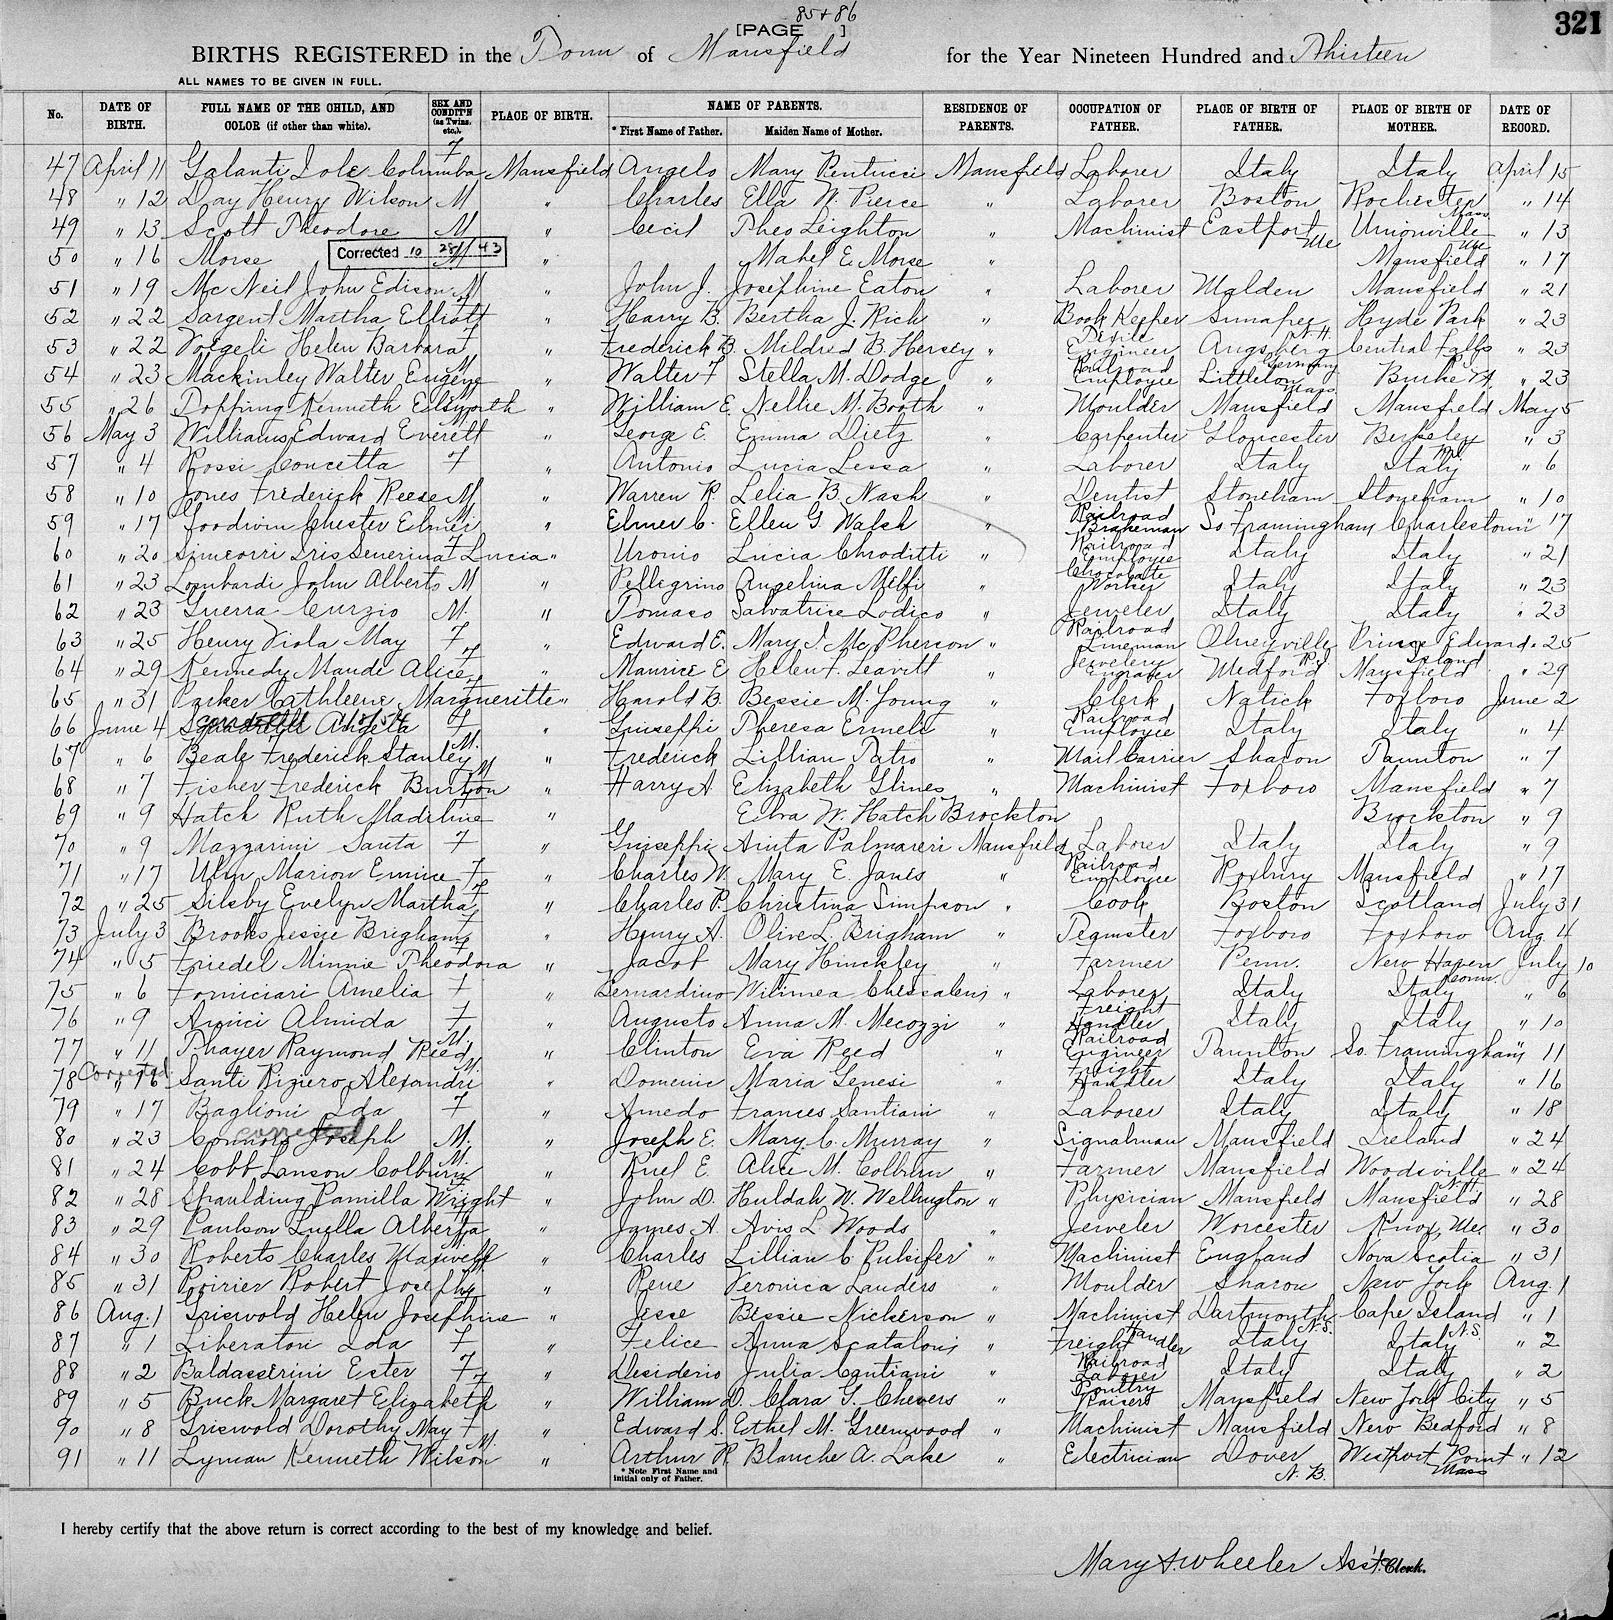 85 + 86
[PAGE ]
321
BIRTHS REGISTERED in the Town of Mansfield for the Year Nineteen Hundred and Thirteen
ALL NAMES TO BE GIVEN IN FULL.
No. DATE OF BIRTH. FULL NAME OF THE CHILD, AND COLOR (if other than white). SEX AND CONDIT'N (as Twins, etc.). PLACE OF BIRTH. NAME OF PARENTS. * First Name of Father. Maiden Name of Mother. RESIDENCE OF PARENTS. OCCUPATION OF FATHER. PLACE OF BIRTH OF FATHER. PLACE OF BIRTH OF MOTHER. DATE OF RECORD.
47 April 11 Galanti Iole Columba F Mansfield Angelo Mary Pentucci Mansfield Laborer Italy Italy April 15
48 " 12 Day Henry Wilson M " Charles Ella W. Pierce " Laborer Boston Rochester Mass. " 14
49 " 13 Scott Theodore M " Cecil Theo Leighton " Machinist Eastport Me Unionville Me " 13
50 " 16 Morse Corrected 10 28 43 M " Mabel E. Morse " Mansfield " 17
51 " 19 McNeil John Edison M " John J. Josephine Eaton " Laborer Malden Mansfield " 21
52 " 22 Sargent Martha Elliott F " Harry B. Bertha J. Rich " Book Keeper Sunapee N.H. Hyde Park " 23
53 " 22 Voegeli Helen Barbara F " Frederick B. Mildred B. Hersey " Engineer Augsberg Germany Central Falls " 23
54 " 23 Mackinley Walter Eugene M " Walter F Stella M. Dodge " Railroad Employee Littleton Mass Burke Vt. " 23
55 " 26 Dopping Kenneth Ellsworth " William E. Nellie M. Booth " Moulder Mansfield Mansfield May 5
56 May 3 Williams Edward Everett " George E. Emma Dietz " Carpenter Gloucester Berkeley " 3
57 " 4 Rossi Concetta F " Antonio Lucia Lessa " Laborer Italy Italy " 6
58 " 10 Jones Frederick Reese M " Warren R. Lelia B. Nash " Dentist Stoneham Stoneham " 10
59 " 17 Goodwin Chester Elmer M " Elmer C. Ellen G Walsh " Railroad Brakeman So Framingham Charlestown " 17
60 " 20 Simeorri Iris Severina F Lucia " Uronio Lucia Chroditti " Railroad Employee Italy Italy " 21
61 " 23 Lombardi John Alberto M " Pellegrino Angelina Melfi " Chocolate Worker Italy Italy " 23
62 " 23 Guerra Curzio M. " Tomaso Salvatrice Lodico " Jeweler Italy Italy " 23
63 " 25 Henry Viola May F " Edward E. Mary I. McPherson " Railroad Lineman Olneyville R.I. Prince Edward Island " 25
64 " 29 Kennedy Maude Alice F " Maurice E Helen F. Leavitt " Jewelery Engraver Medford Mansfield " 29
65 " 31 Parker Cathleene Margueritte " Harold B. Bessie M. Young " Clerk Natick Foxboro June 2
66 June 4 Angela F " Guiseppi Theresa Ermeli " Railroad Employee Italy Italy " 4
67 " 6 Beale Frederick Stanley M. " Frederick Lillian Patro " Mail Carrier Sharon Taunton " 7
68 " 7 Fisher Frederick Burton M " Harry A Elizabeth Glines " Machinist Foxboro Mansfield " 7
69 " 9 Hatch Ruth Madiline " Edra W. Hatch Brockton Brockton " 9
70 " 9 Mazzarini Santa F " Guiseppi Anita Palmareri Mansfield Laborer Italy Italy " 9
71 " 17 Ulm Marion Eunice F " Charles W. Mary E. Janes " Railroad Employee Roxbury Mansfield " 17
72 " 25 Silsby Evelyn Martha F " Charles P. Christina Simpson " Cook Boston Scotland July 31
73 July 3 Brooks Jessie Brigham F " Henry A. Olive L. Brigham " Teamster Foxboro Foxboro Aug 4
74 " 5 Friedel Minnie Theodora " Jacob Mary Hinckley " Farmer Penn. New Haven Conn. July 10
75 " 6 Forniciari Amelia F " Bernardino Wilimea Chessaleni " Laborer Italy Italy " 6
76 " 9 Amici Almida F " Augusto Anna M. Mecozzi " Freight Handler Italy Italy " 10
77 " 11 Thayer Raymond Reed M. " Clinton Eva Reed " Railroad Engineer Taunton So. Framingham " 11
78 Corrected " 16 Santi Riziero Alexandri M. " Domenic Maria Genesi " Freight Handler Italy Italy " 16
79 " 17 Baglioni Ida F " Amedo Frances Santiani " Laborer Italy Italy " 18
80 " 23 Connors Joseph corrected M. " Joseph E. Mary C. Murray " Signalman Mansfield Ireland " 24
81 " 24 Cobb Lanson Colburn M. " Ruel E. Alice M. Colburn " Farmer Mansfield Woodsville N.H. " 24
82 " 28 Spaulding Pamilla Wright F " John D. Huldah W. Wellington " Physician Mansfield Mansfield " 28
83 " 29 Paulson Luella Alberta F " James A. Avis L Woods " Jeweler Worcester Knox, Me. " 30
84 " 30 Roberts Charles Maxwell M " Charles Lillian C Pulsifer " Machinist England Nova Scotia " 31
85 " 31 Poirier Robert Joseph M " Rene Veronica Landers " Moulder Sharon New York Aug. 1
86 Aug. 1 Griswold Helen Josephine " Jesse Bessie Nickerson " Machinist Dartmouth N.S. Cape Island N.S. " 1
87 " 1 Liberatori Ida F " Felice Anna Scataloni " Freight Handler Italy Italy " 2
88 " 2 Baldasserini Ester F " Desiderio Julia Cantiani " Railroad Laborer Italy Italy " 2
89 " 5 Buck Margaret Elizabeth F " William D. Clara G. Chevers " Poultry Raiser Mansfield New York City " 5
90 " 8 Griswold Dorothy May F " Edward S. Ethel M. Greenwood " Machinist Mansfield New Bedford " 8
91 " 11 Lyman Kenneth Wilson M. " Arthur R. Blanche A. Lake " Electrician Dover N.B. Westport Point Mass " 12
* Note First Name and initial only of Father.
I hereby certify that the above return is correct according to the best of my knowledge and belief.
Mary S. Wheeler Ass't. Clerk.